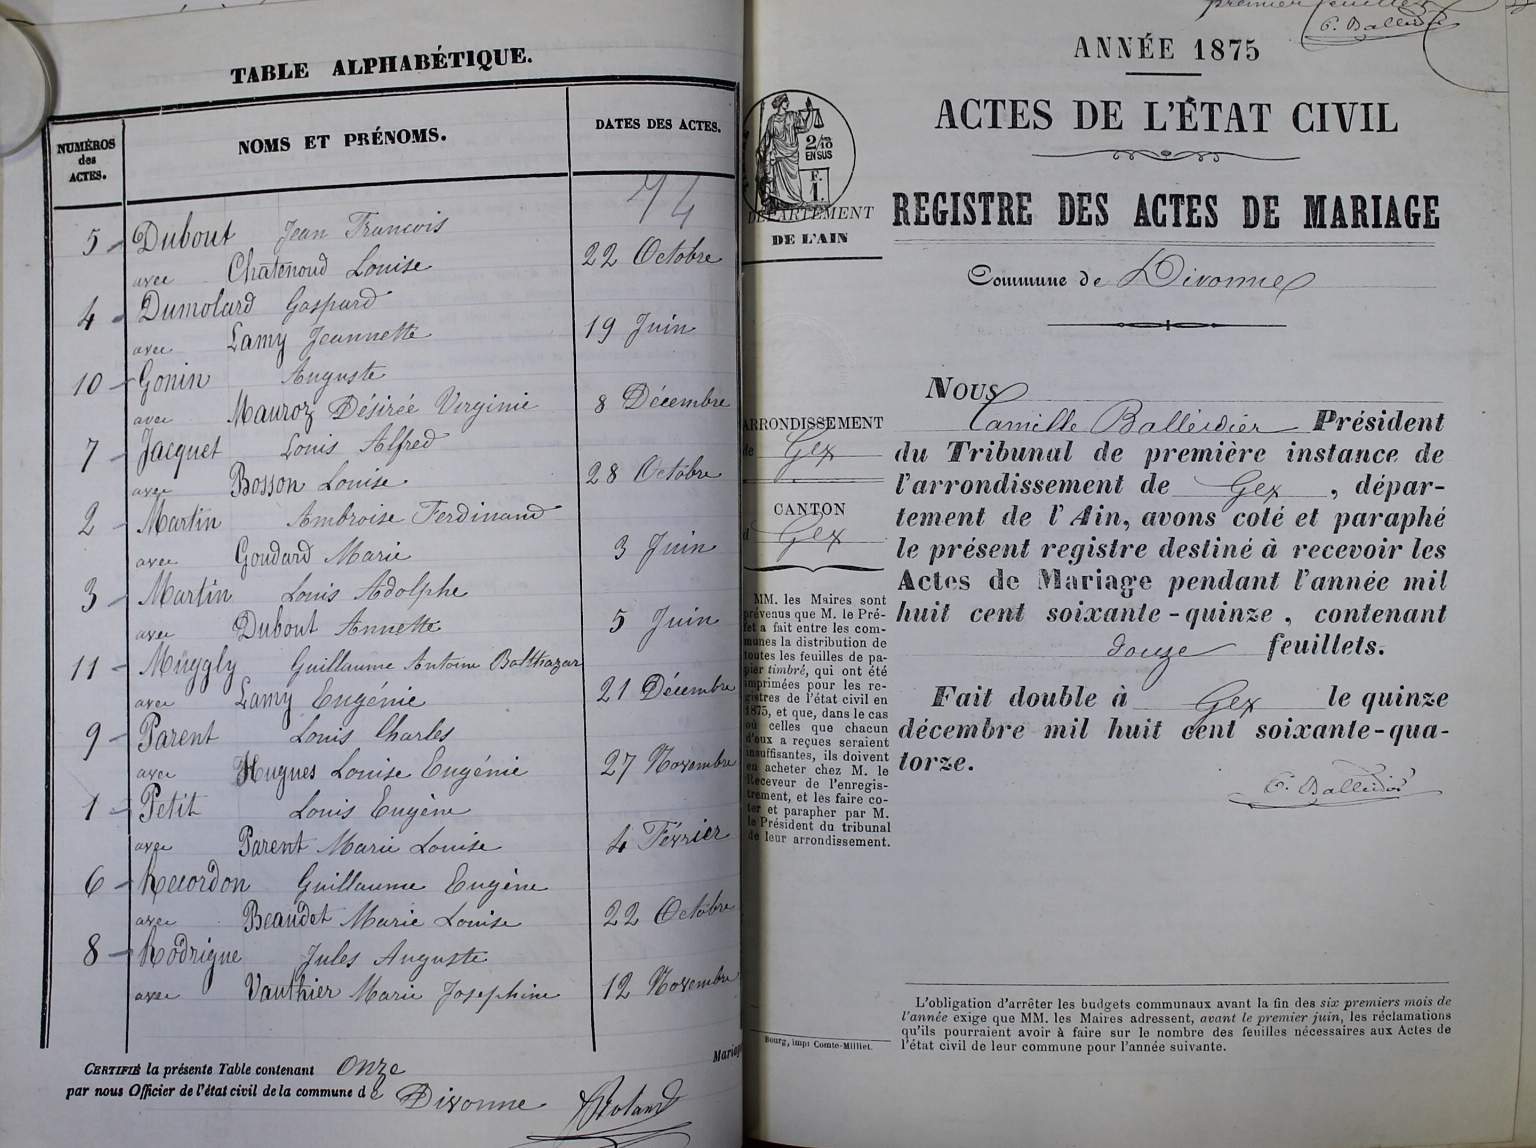 TABLE ALPHABÉTIQUE.
NUMÉROS
des
ACTES.
NOMS ET PRÉNOMS.
DATES DES ACTES.
74
5 Dubout Jean Francois
avec Chatenoud Louise 22 Octobre
4 Dumolard Gaspard
avec Lamy Jeannette 19 Juin
10 Gonin Auguste
avec Mauroz Désirée Virginie 8 Décembre
7 Jacquet Louis Alfred
avec Bosson Louise 28 Octobre
2 Martin Ambroise Ferdinand
avec Goudard Marie 3 Juin
3 Martin Louis Adolphe
avec Dubout Annette 5 Juin
11 Müggly Guillaume Antoine Balthazar
avec Lamy Eugénie 21 Décembre
9 Parent Louis Charles
avec Hugues Louise Eugénie 27 Novembre
1 Petit Louis Eugène
avec Parent Marie Louise 4 Février
6 Recordon Guillaume Eugène
avec Beaudet Marie Louise 22 Octobre
8 Rodrigue Jules Auguste
avec Vauthier Marie Josephine 12 Novembre
CERTIFIÉ la présente Table contenant Onze Mariage
par nous Officier de l'état civil de la commune de Divonne
Roland
premier feuillet
C. Balleidier
ANNÉE 1875
ACTES DE L'ÉTAT CIVIL
2/10
EN SUS
F.
1.
DÉPARTEMENT
DE L'AIN
REGISTRE DES ACTES DE MARIAGE
Commune de Divonne
ARRONDISSEMENT
de Gex
CANTON
d Gex
MM. les Maires sont
prévenus que M. le Pré-
fet a fait entre les com-
munes la distribution de
toutes les feuilles de pa-
pier timbré, qui ont été
imprimées pour les re-
gistres de l'état civil en
1875, et que, dans le cas
où celles que chacun
d'eux a reçues seraient
insuffisantes, ils doivent
en acheter chez M. le
Receveur de l'enregis-
trement, et les faire co-
ter et parapher par M.
le Président du tribunal
de leur arrondissement.
Bourg, imp: Comte-Milliet.
NOUS
Camille Balleidier Président
du Tribunal de première instance de
l'arrondissement de Gex, dépar-
tement de l'Ain, avons coté et paraphé
le présent registre destiné à recevoir les
Actes de Mariage pendant l'année mil
huit cent soixante-quinze, contenant
douze feuillets.
Fait double à Gex le quinze
décembre mil huit cent soixante-qua-
torze.
C. Balleidier
L'obligation d'arrêter les budgets communaux avant la fin des six premiers mois de
l'année exige que MM. les Maires adressent, avant le premier juin, les réclamations
qu'ils pourraient avoir à faire sur le nombre des feuilles nécessaires aux Actes de
l'état civil de leur commune pour l'année suivante.